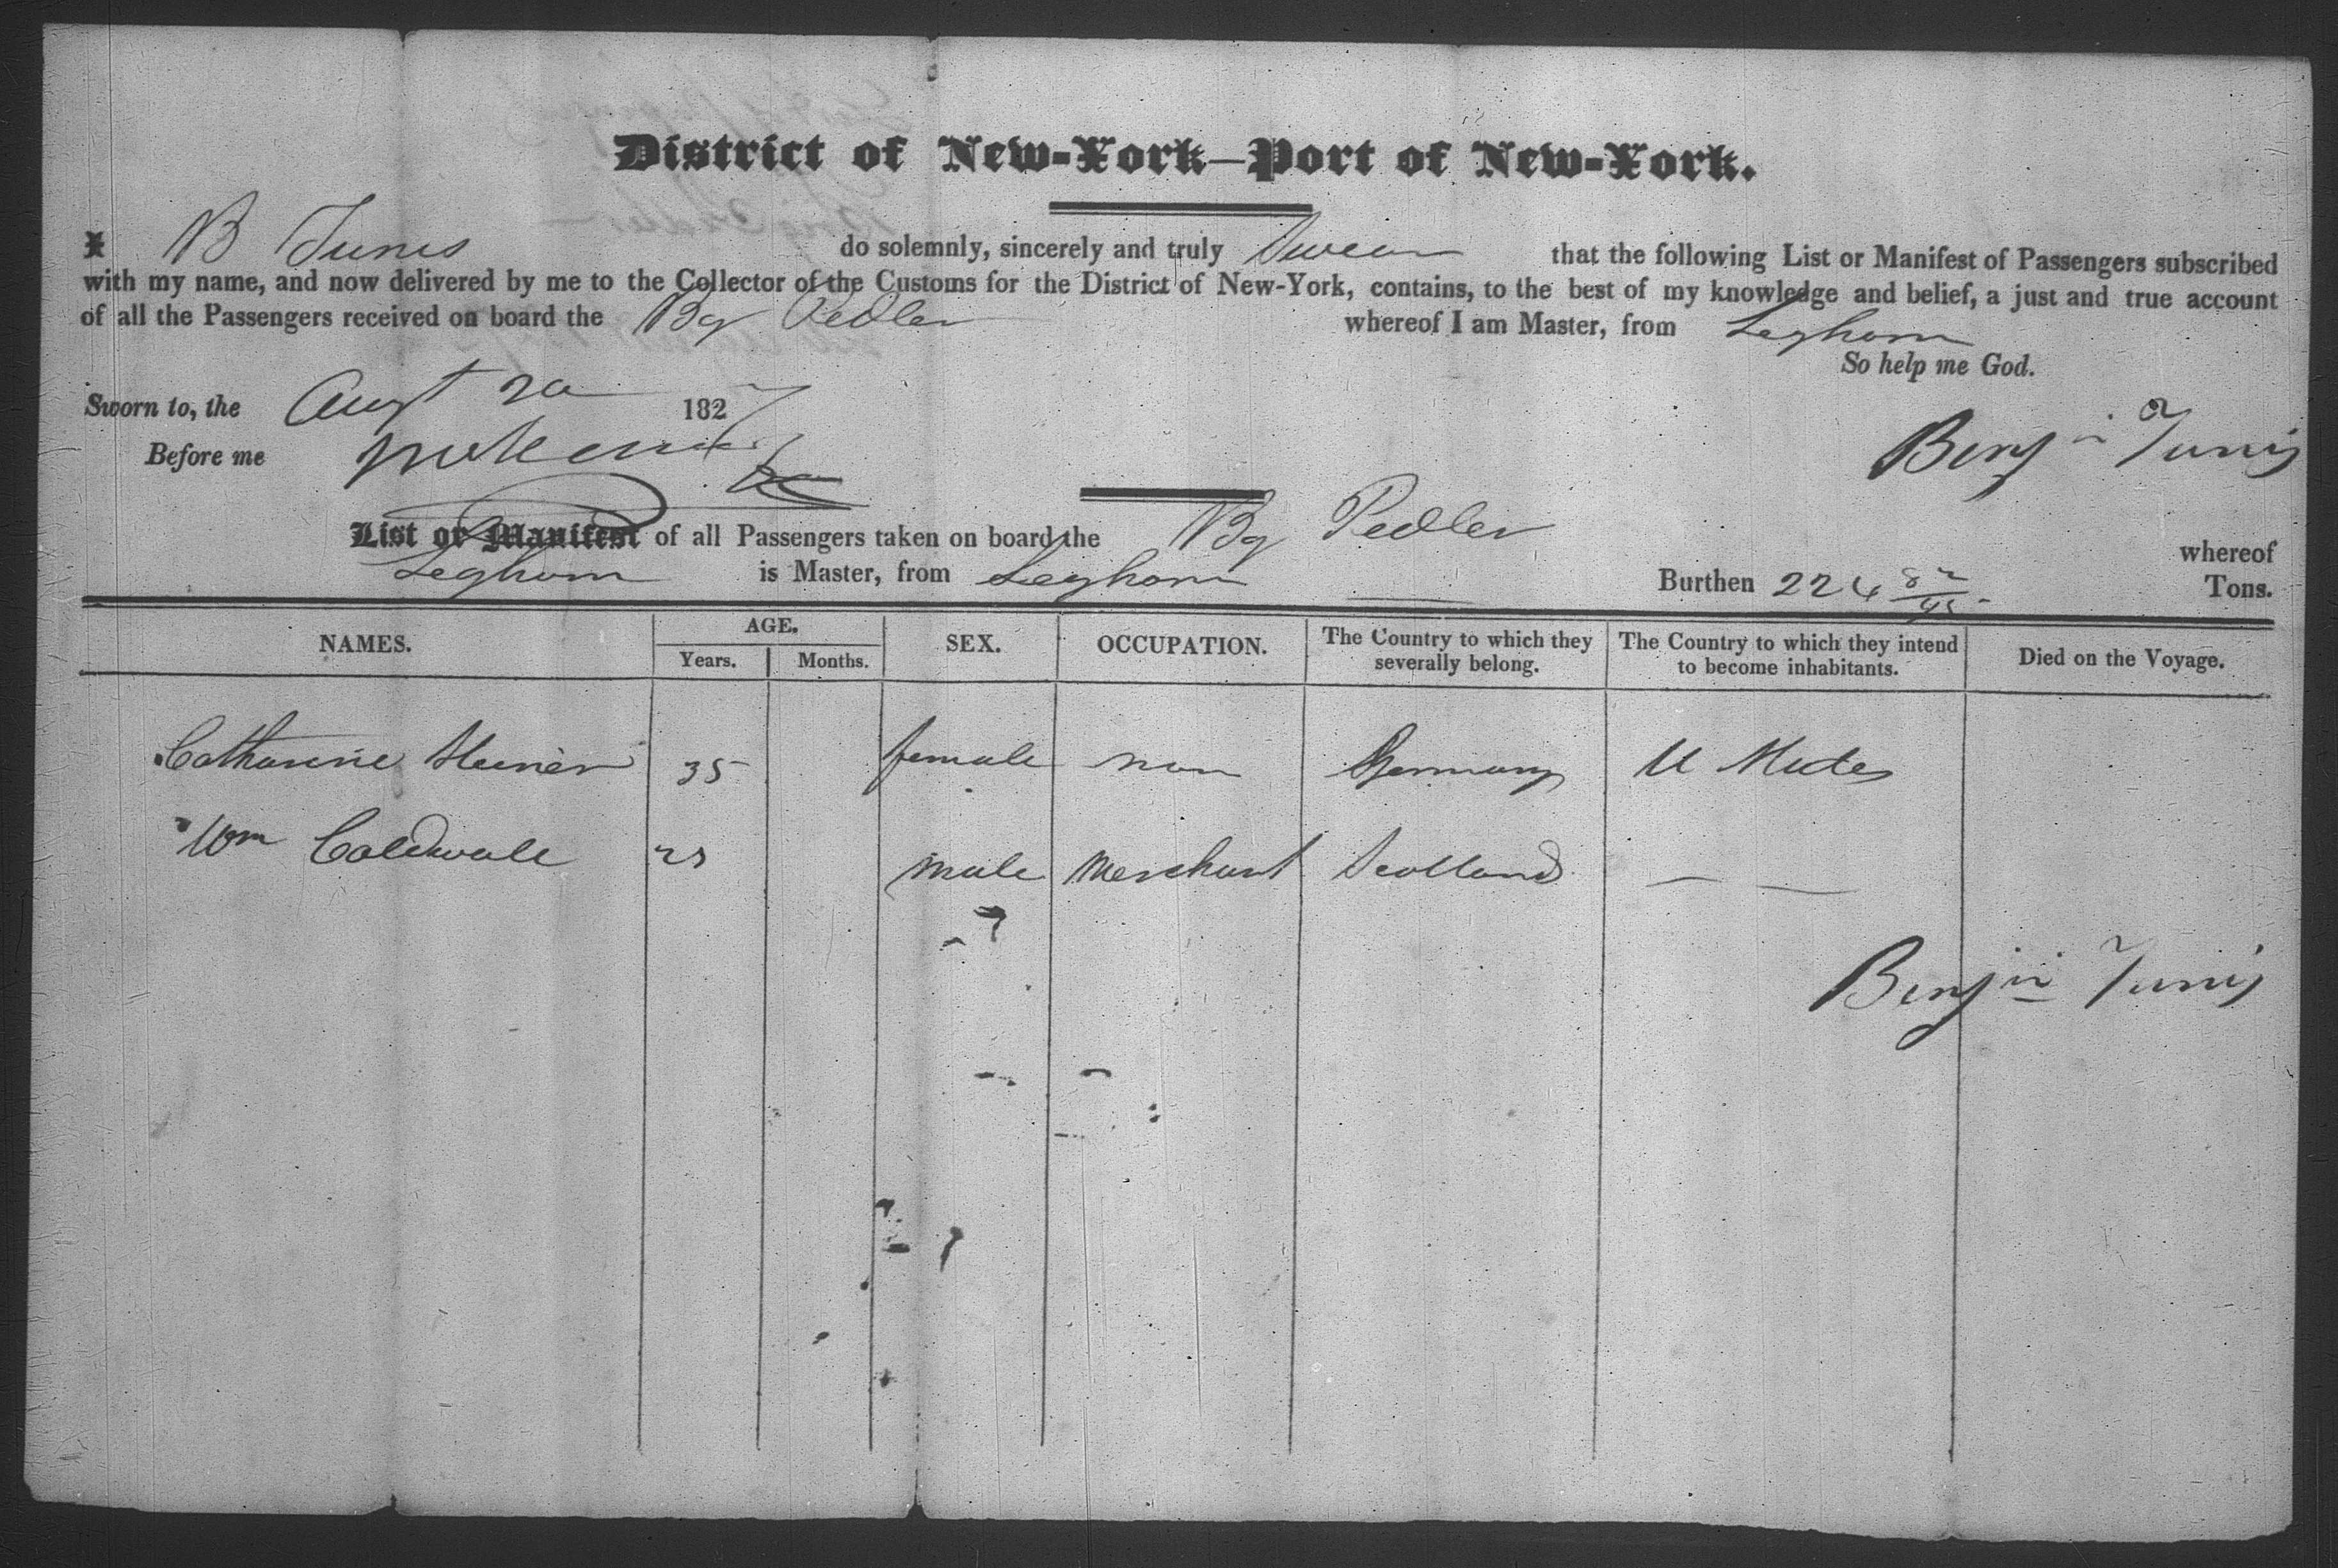 District of New-York—Port of New-York.
I B Tunis do solemnly, sincerely and truly Swear that the following List or Manifest of Passengers subscribed
with my name, and now delivered by me to the Collector of the Customs for the District of New-York, contains, to the best of my knowledge and belief, a just and true account
of all the Passengers received on board the Bg Pedler whereof I am Master, from Leghorn
So help me God.
Sworn to, the Augt 20 1827
Benjn Tunis
Before me
List or Manifest of all Passengers taken on board the Bg Pedler whereof
Leghorn is Master, from Leghorn Burthen 224 82/95 Tons.
NAMES. AGE. SEX. OCCUPATION. The Country to which they severally belong. The Country to which they intend to become inhabitants. Died on the Voyage.
Years. Months.
Catharine 35 female non Germany U States
Wm Caldwale 23 male Merchant Scotland — —
Benjn Tunis